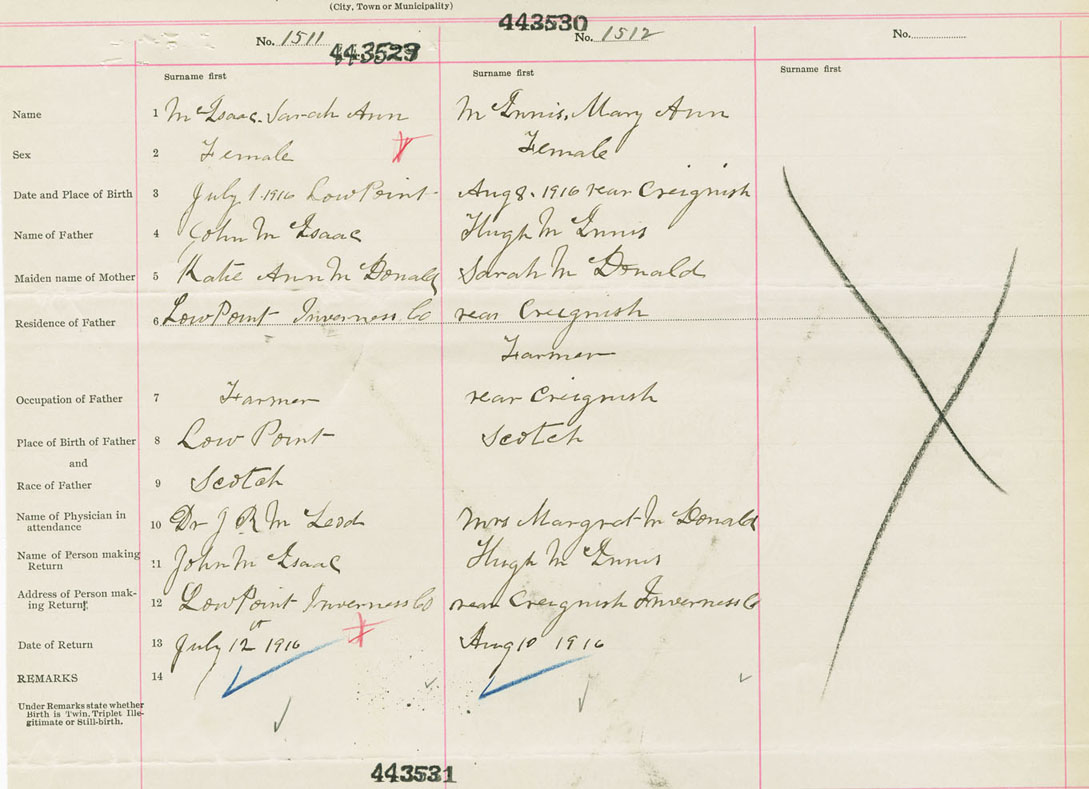 (City, Town or Municipality)
443530
No. 1511 No. 1512 No.
443529
Surname first Surname first Surname first
Name 1 McIsaac, Sarah Ann McInnis, Mary Ann
Sex 2 Female Female
Date and Place of Birth 3 July 1. 1916 Low Point Aug 8. 1916 rear Creignish
Name of Father 4 John McIsaac Hugh McInnis
Maiden name of Mother 5 Katie Ann McDonald Sarah McDonald
Residence of Father 6 Low Point Inverness Co rear Creignish
Farmer
Occupation of Father 7 Farmer rear Creignish
Place of Birth of Father 8 Low Point Scotch
and
Race of Father 9 Scotch
Name of Physician in attendance 10 Dr J R McLeod Mrs Margret McDonald
Name of Person making Return 11 John McIsaac Hugh McInnis
Address of Person making Return 12 Low Point Inverness Co rear Creignish Inverness Co
Date of Return 13 July 12th 1916 Aug 10 1916
REMARKS 14
Under Remarks state whether
Birth is Twin, Triplet Ille-
gitimate or Still-birth.
443531